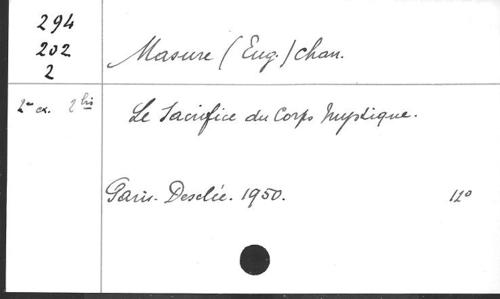 294
202
2
Masure (Eug.) chan.
2e ex. 2 bis
Le Sacrifice du Corps Mystique.
Paris. Desclée. 1950. 12°